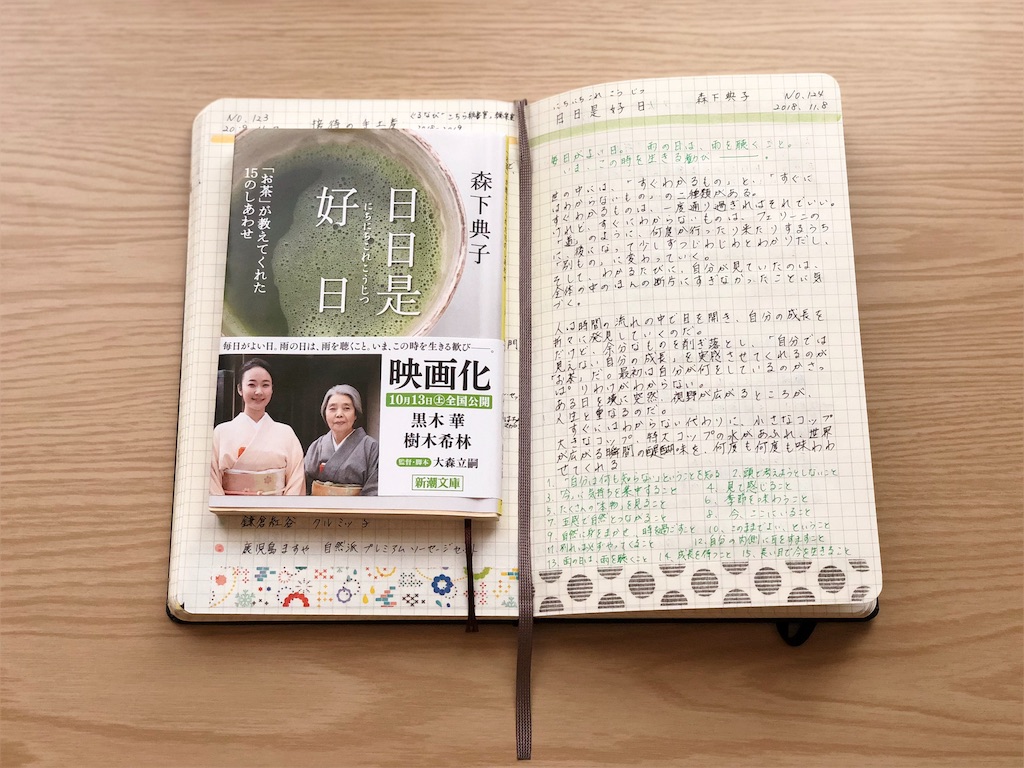 NO.123
接待の手土産
森下典子
日日是
好日
にちにちこれこうじつ
「お茶」が教えてくれた
15のしあわせ
毎日がよい日。雨の日は、雨を聴くこと。いま、この時を生きる歓び――。
映画化
10月13日(土)全国公開
黒木 華
樹木希林
監督・脚本 大森立嗣
新潮文庫
鎌倉紅谷 クルミッ子
鹿児島ますや 自然派プレミアムソーセージセット
にちにちこれ こう じつ
日日是好日
森下典子
NO.124
2018.11.8
毎日がよい日。雨の日は、雨を聴くこと。
いま、この時を生きる歓び――。
世の中には、「すぐわかるもの」と、「すぐに
はわからないもの」の二種類がある。
すぐわかるものは、一度通り過ぎればそれでいい。
けれど、すぐにわからないものは、フェリーニの
『道』のように、何度か行ったり来たりするうち
に、後になって少しずつじわじわとわかりだし、
「別もの」に変わっていく。
そして、わかるたびに、自分が見ていたのは、
全体の中のほんの断片にすぎなかったことに気
づく。
人は時間の流れの中で目を開き、自分の成長を
折々に発見していくのだ。
だけど、余分なものを削ぎ落とし、「自分では
見えない自分の成長」を実感させてくれるのが
「お茶」だ。最初は自分が何をしているのかさっ
ぱりわけがわからない。
ある日を境に突然、視野が広がるところが、
人生と重なるのだ。
すぐにはわからない代わりに、小さなコップ
大きなコップ、特大コップの水があふれ、世界
が広がる瞬間の醍醐味を、何度も何度も味わわ
せてくれる
1. 「自分は何も知らない」ということを知る 2. 頭で考えようとしないこと
3. 「今」に気持ちを集中すること 4. 見て感じること
5. たくさんの「本物」を見ること 6. 季節を味わうこと
7. 五感で自然とつながること 8. 今、ここにいること
9. 自然に身をまかせ、時を過ごすこと 10. このままでよい、ということ
11. 別れは必ずやってくること 12. 自分の内側に耳をすますこと
13. 雨の日は、雨を聴くこと 14. 成長を待つこと 15. 長い目で今を生きること